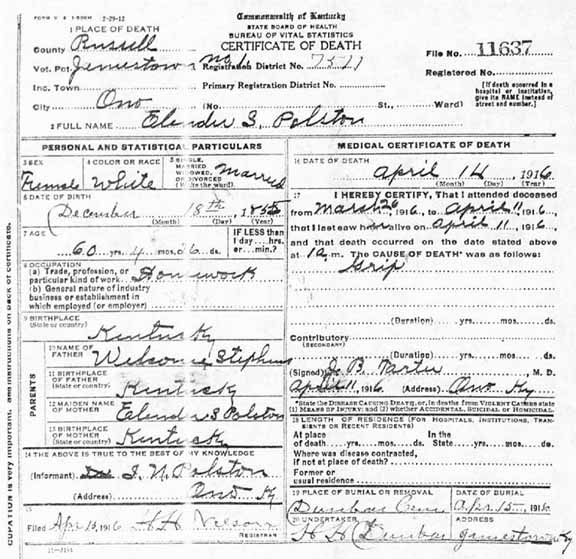 FORM V. S. 2-29-12
Commonwealth of Kentucky
STATE BOARD OF HEALTH
BUREAU OF VITAL STATISTICS
CERTIFICATE OF DEATH
1 PLACE OF DEATH
County Russell
File No. 11637
Vot. Pct Jamestown No 1 Registration District No.
Registered No.
Inc. Town Primary Registration District No.
[If death occurred in a hospital or institution, give its NAME instead of street and number.]
City Ono (No. St., Ward)
2 FULL NAME Elender S. Polston
PERSONAL AND STATISTICAL PARTICULARS
3 SEX Female
4 COLOR OR RACE White
5 SINGLE, MARRIED, WIDOWED, OR DIVORCED (Write the word.) Married
6 DATE OF BIRTH
December 18th 1855
(Month) (Day) (Year)
7 AGE
60 yrs. 4 mos. 06 ds.
IF LESS than 1 day....hrs. or....min.?
8 OCCUPATION
(a) Trade, profession, or particular kind of work Housework
(b) General nature of industry business or establishment in which employed (or employer)
9 BIRTHPLACE
(State or country) Kentucky
PARENTS
10 NAME OF FATHER Stephens
11 BIRTHPLACE OF FATHER (State or country) Kentucky
12 MAIDEN NAME OF MOTHER Elender S Polston
13 BIRTHPLACE OF MOTHER (State or country) Kentucky
14 THE ABOVE IS TRUE TO THE BEST OF MY KNOWLEDGE
(Informant) J. N. Polston
(Address) Ono Ky
15
Filed Apr 15, 1916 H H Nelson
REGISTRAR
MEDICAL CERTIFICATE OF DEATH
16 DATE OF DEATH
April 14 1916
(Month) (Day) (Year)
17 I HEREBY CERTIFY, That I attended deceased
from March 26 1916, to April 11 1916,
that I last saw her alive on April 11 1916,
and that death occurred on the date stated above
at 1 a.m. The CAUSE OF DEATH* was as follows:
Grip
(Duration) yrs. mos. ds.
Contributory
(SECONDARY)
(Duration) yrs. mos. ds.
(Signed) J. B. Tarter M. D.
April 11, 1916 (Address) Ono Ky
*State the DISEASE CAUSING DEATH, or, in deaths from VIOLENT CAUSES state (1) MEANS OF INJURY; and (2) whether ACCIDENTAL, SUICIDAL or HOMICIDAL.
18 LENGTH OF RESIDENCE (FOR HOSPITALS, INSTITUTIONS, TRANSIENTS OR RECENT RESIDENTS)
At place of death yrs. mos. ds. In the State yrs. mos. ds.
Where was disease contracted, if not at place of death?
Former or usual residence
19 PLACE OF BURIAL OR REMOVAL
Dunbar Cem
DATE OF BURIAL
Apr 15 1916
20 UNDERTAKER
H H Dunbar
ADDRESS
Jamestown Ky
CUPATION is very important.
and instructions on back of certificate.